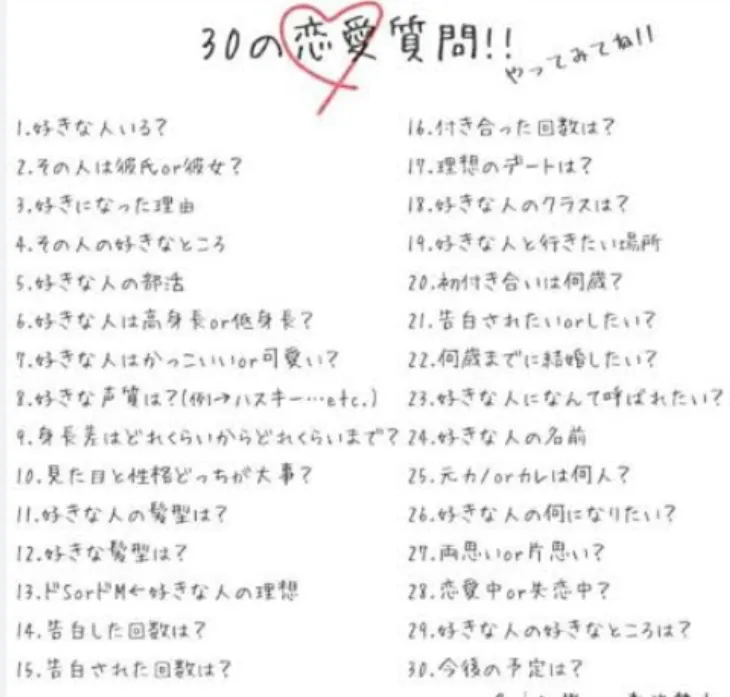 30の恋愛質問!!
やってみてね!!
1.好きな人いる?
2.その人は彼氏or彼女?
3.好きになった理由
4.その人の好きなところ
5.好きな人の部活
6.好きな人は高身長or低身長?
7.好きな人はかっこいいor可愛い?
8.好きな声質は?(例→ハスキー…etc.)
9.身長差はどれくらいからどれくらいまで?
10.見た目と性格どっちが大事?
11.好きな人の髪型は?
12.好きな髪型は?
13.ドSorドM←好きな人の理想
14.告白した回数は?
15.告白された回数は?
16.付き合った回数は?
17.理想のデートは?
18.好きな人のクラスは?
19.好きな人と行きたい場所
20.初付き合いは何歳?
21.告白されたいorしたい?
22.何歳までに結婚したい?
23.好きな人になんて呼ばれたい?
24.好きな人の名前
25.元カノorカレは何人?
26.好きな人の何になりたい?
27.両思いor片思い?
28.恋愛中or失恋中?
29.好きな人の好きなところは?
30.今後の予定は?